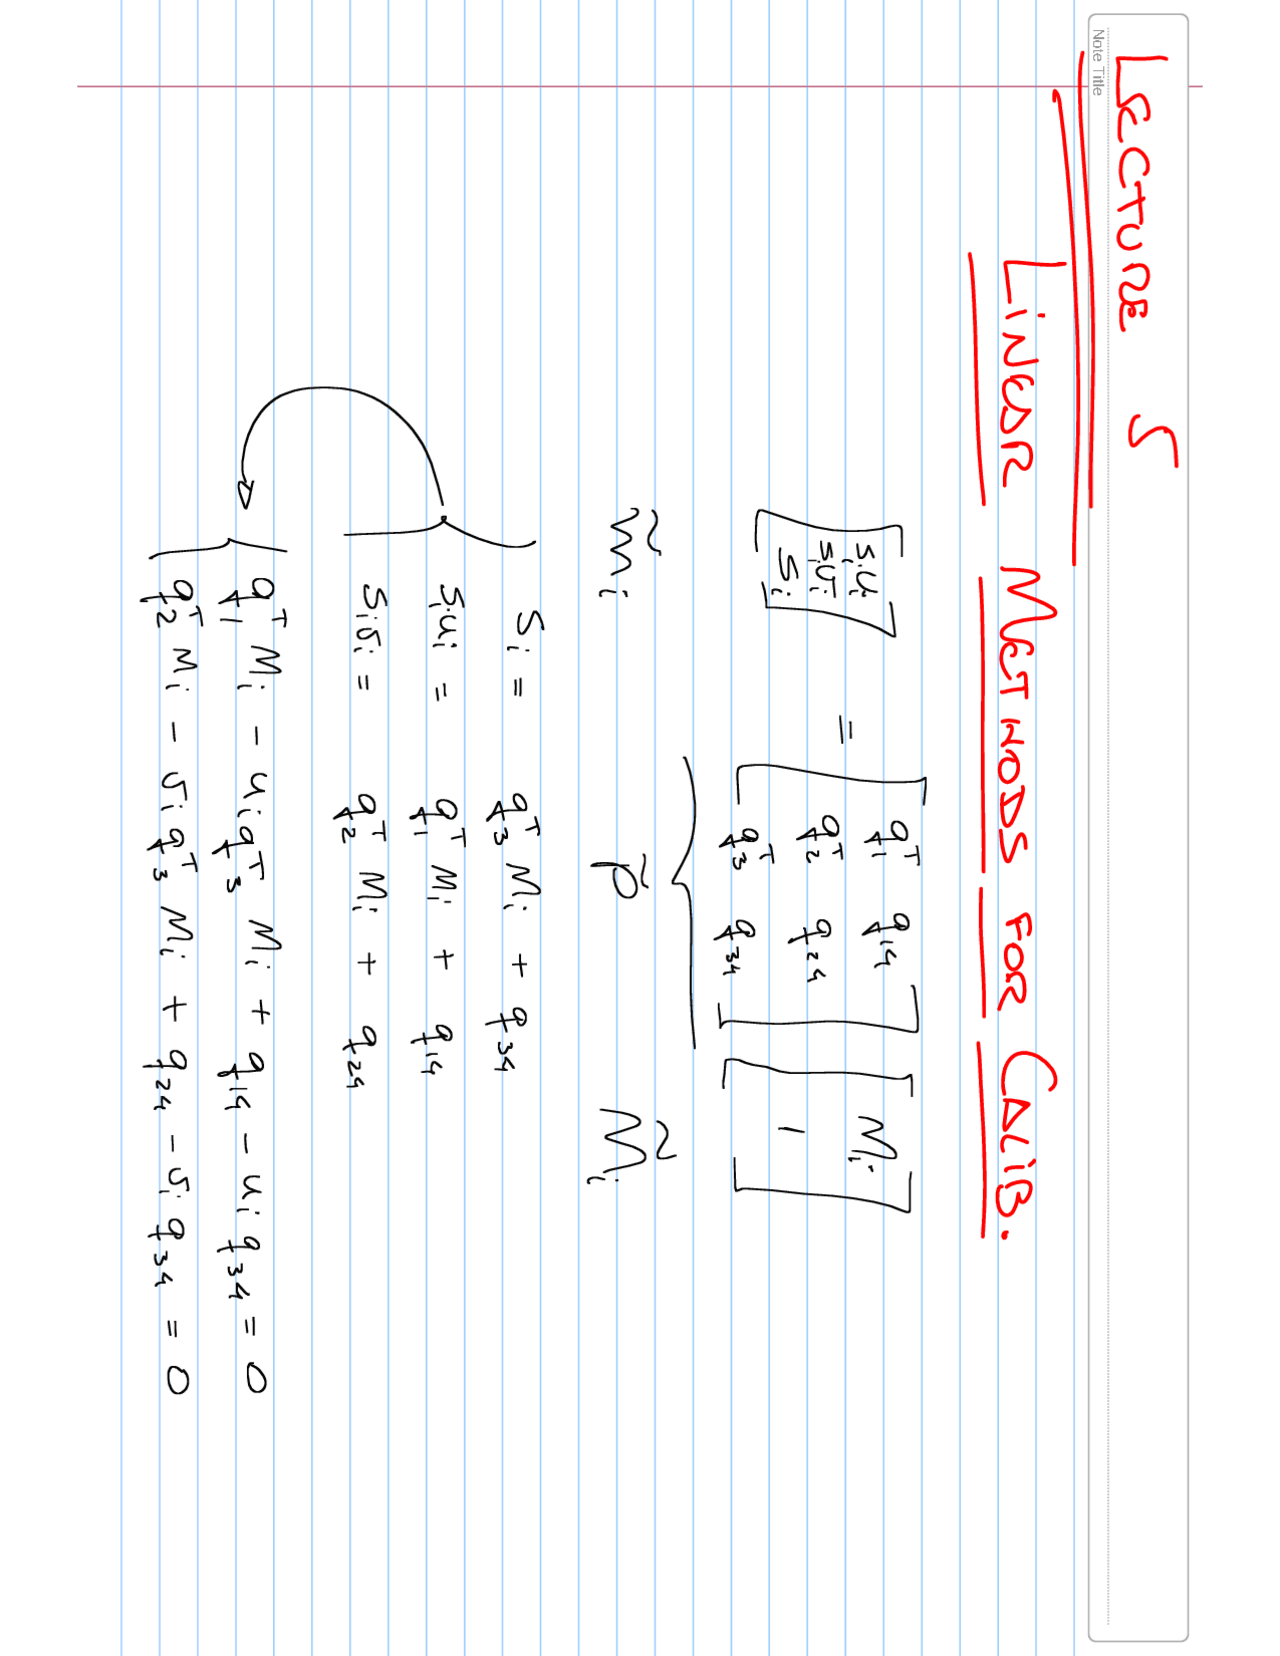 LECTURE 5
Note Title
LINEAR METHODS FOR CALIB.
[ s_i u_i ; s_i v_i ; s_i ] = [ q_1^T q_14 ; q_2^T q_24 ; q_3^T q_34 ] [ M_i ; 1 ]
m̃_i P̃ M̃_i
s_i = q_3^T M_i + q_34
s_i u_i = q_1^T M_i + q_14
s_i v_i = q_2^T M_i + q_24
q_1^T M_i - u_i q_3^T M_i + q_14 - u_i q_34 = 0
q_2^T M_i - v_i q_3^T M_i + q_24 - v_i q_34 = 0